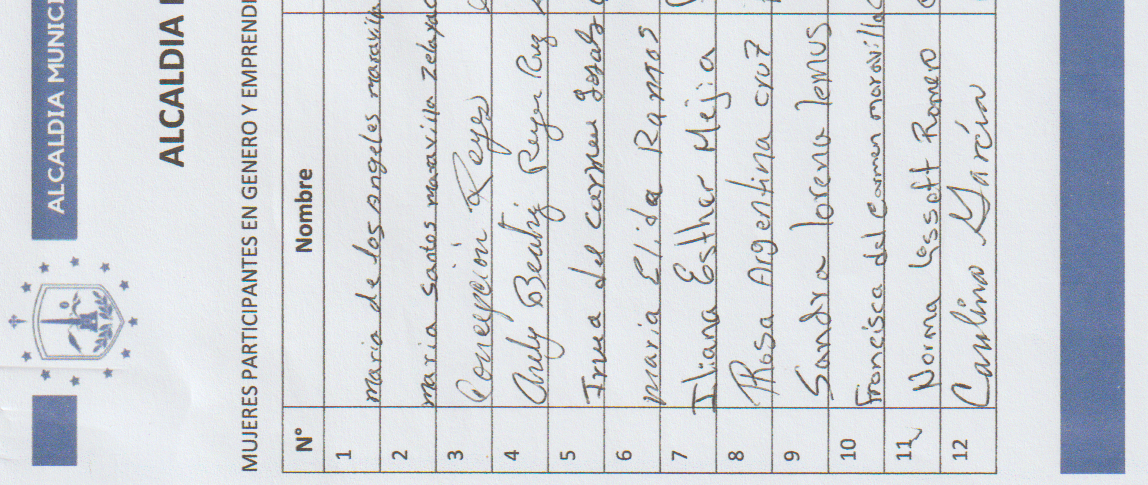 ALCALDIA MUNIC
ALCALDIA
MUJERES PARTICIPANTES EN GENERO Y EMPREND
N° Nombre
1 maria de los angeles maravilla
2 maria santos maravilla Zelaya
3 Concepcion Reyes
4 Beatriz Reyes Ruiz
5 del carmen
6 maria Elida Ramos
7 Iliana Esther Mejia
8 Rosa Argentina cruz
9 Sandra lorena lemus
10 Francisca del carmen maravilla
11 Norma Romero
12 García